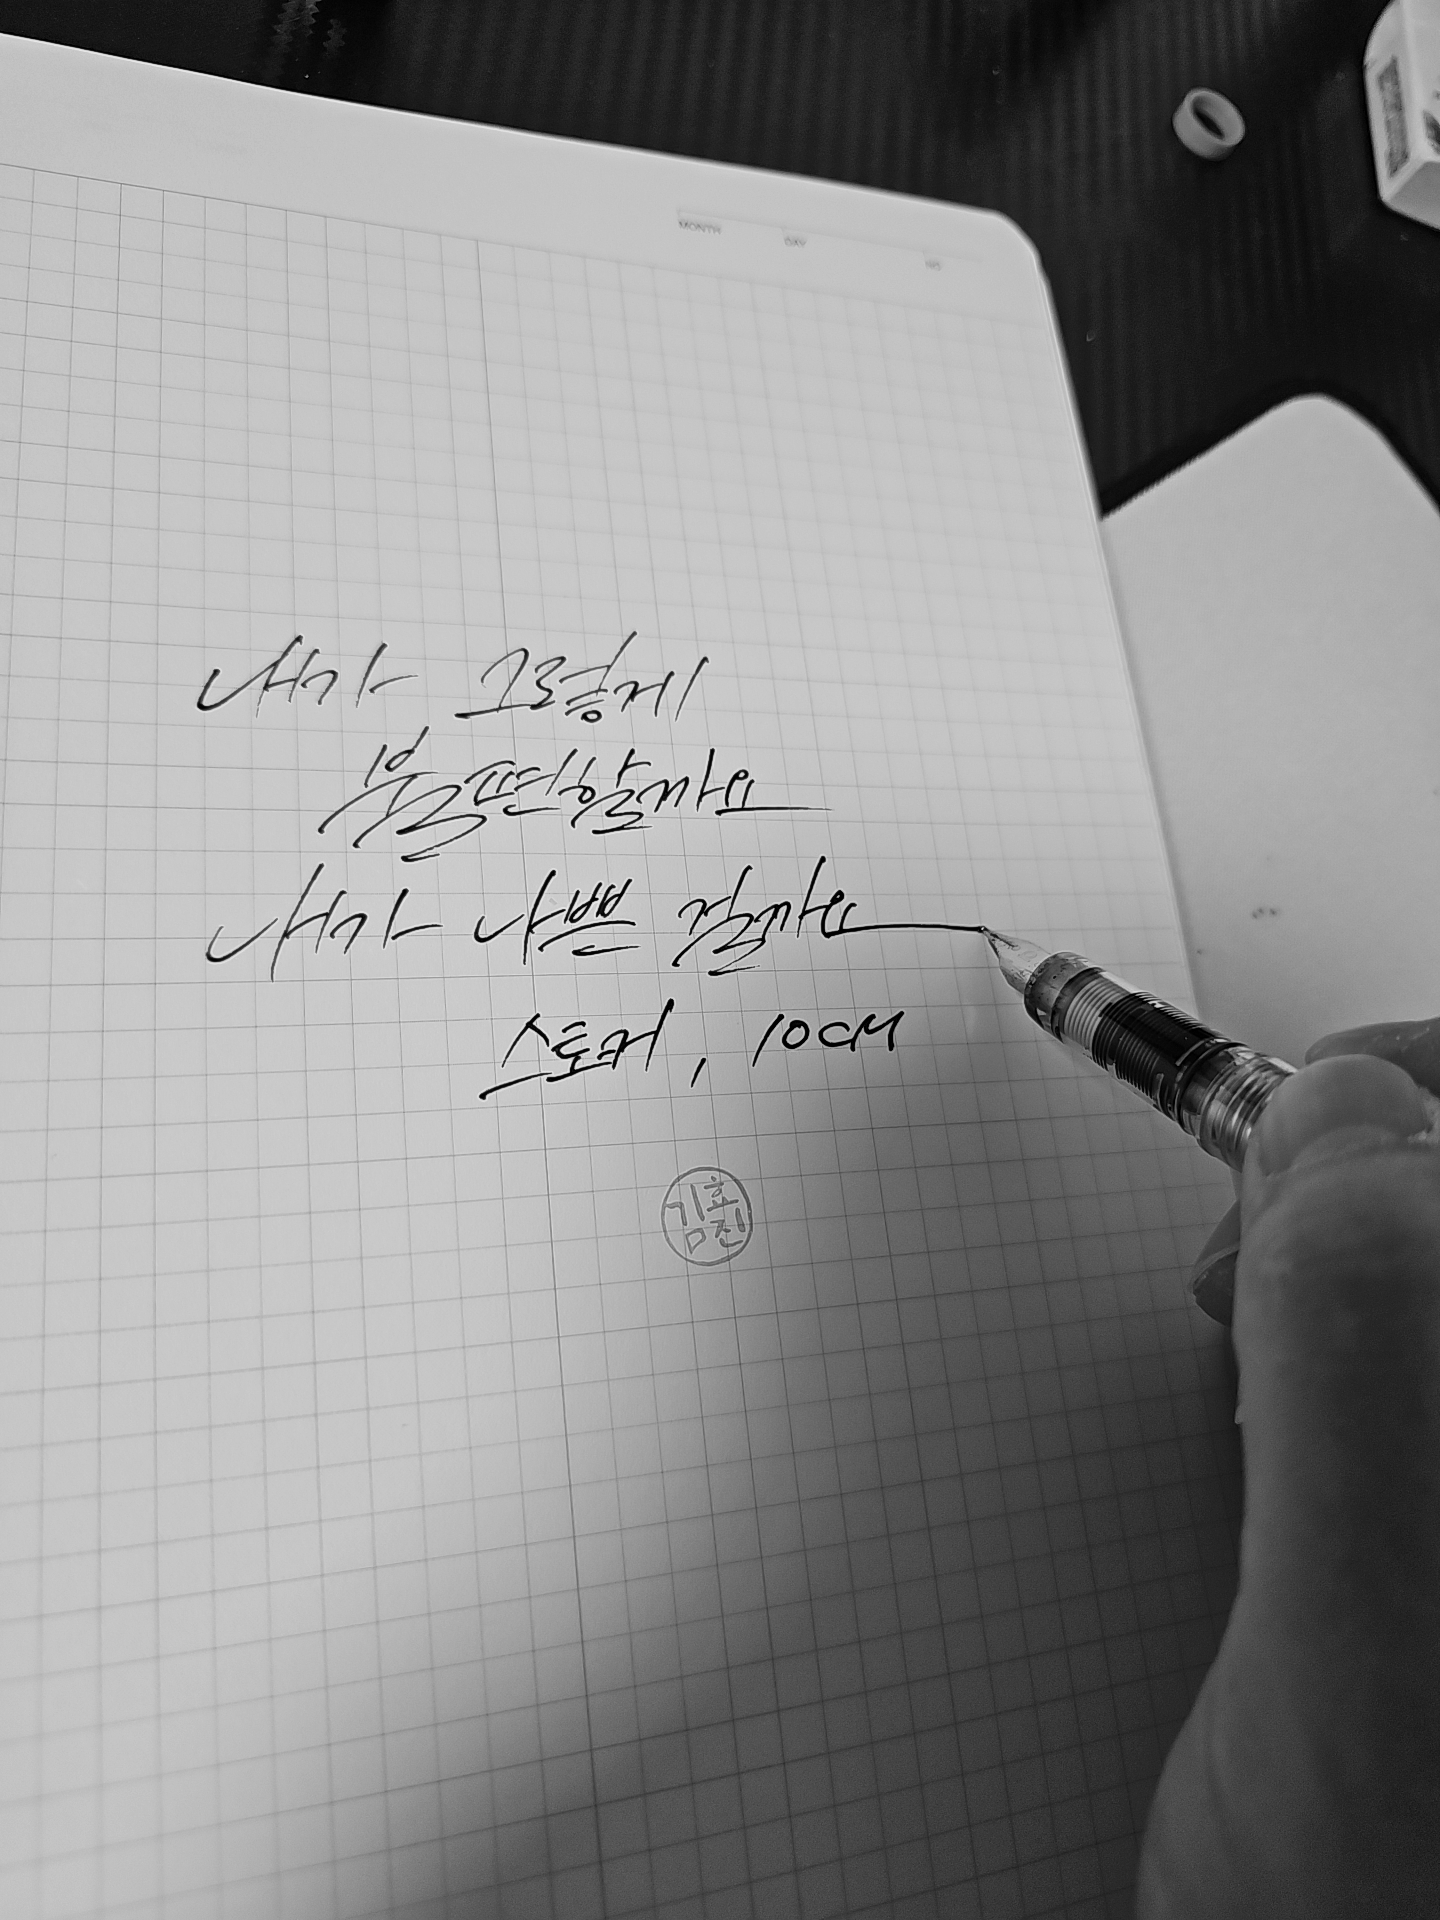 MONTH DAY NO
내가 그렇게
불편할까요
내가 나쁜 걸까요
스토커, 10CM
김효진